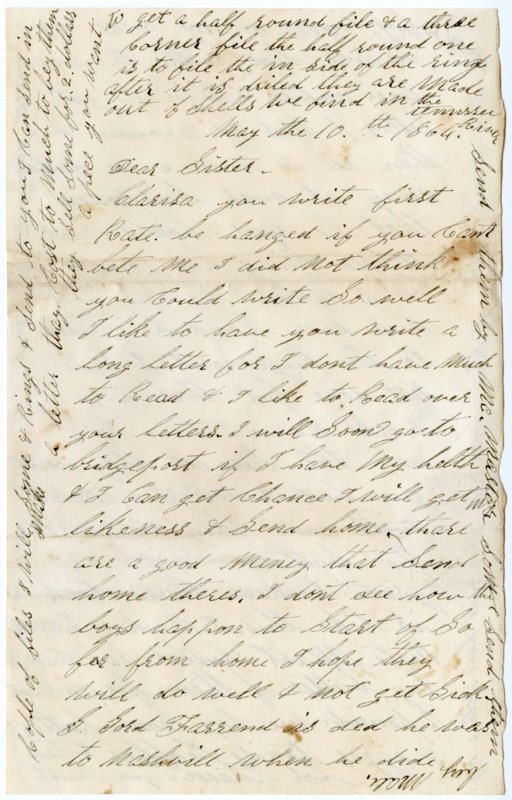 to get a half round file & a three
Corner file the half round one
is to file the in side of the ring
after it is driled they are made
out of Shells We find in the
tennessee River
May the 10th 1864.
Dear Sister.
Clarisa you write first
Rate. be hanged if you Cant
bete me I did not think
you Could write So well
I like to have you write a
long letter for I dont have Much
to Read & I like to Read over
your letters. I will Soon go to
bridgeport if I have My helth
& I Can get Chance I will get my
likeness & Send home, thare
are a good meney that Send
home theres. I dont See how the
boys happon to Start of So
far from home I hope they
will do well & not get Sick
Ford Farrend is ded he was
to Nashvill when he dide
Send them by Mc. Master Send Them
by Male.
Cople of files I will Some Rings & Send to you I Can Send in
Make
a letter they Cost to Much to buy them
they Sell Some for 2 dollars
a peec you want